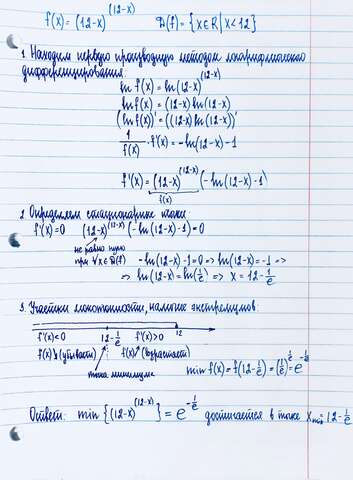 f(x) = (12-x)^(12-x) D(f) = {x∈R | x<12}
1. Находим первую производную методом логарифмического
дифференцирования:
ln f(x) = ln(12-x)^(12-x)
ln f(x) = (12-x) ln(12-x)
(ln f(x))' = ((12-x) ln(12-x))'
1/f(x) · f'(x) = -ln(12-x) - 1
f'(x) = (12-x)^(12-x) (-ln(12-x) - 1)
f(x)
2. Определяем стационарные точки:
f'(x) = 0 (12-x)^(12-x) (-ln(12-x) - 1) = 0
не равно нулю
при ∀x∈D(f) -ln(12-x) - 1 = 0 => ln(12-x) = -1 =>
=> ln(12-x) = ln(1/e) => x = 12 - 1/e
3. Участки монотонности, наличие экстремумов:
f'(x)<0 12 - 1/e f'(x)>0 12
f(x)↘ (убывает) f(x)↗ (возрастает)
точка минимума min f(x) = f(12 - 1/e) = (1/e)^(1/e) = e^(-1/e)
Ответ: min {(12-x)^(12-x)} = e^(-1/e) достигается в точке x_min = 12 - 1/e